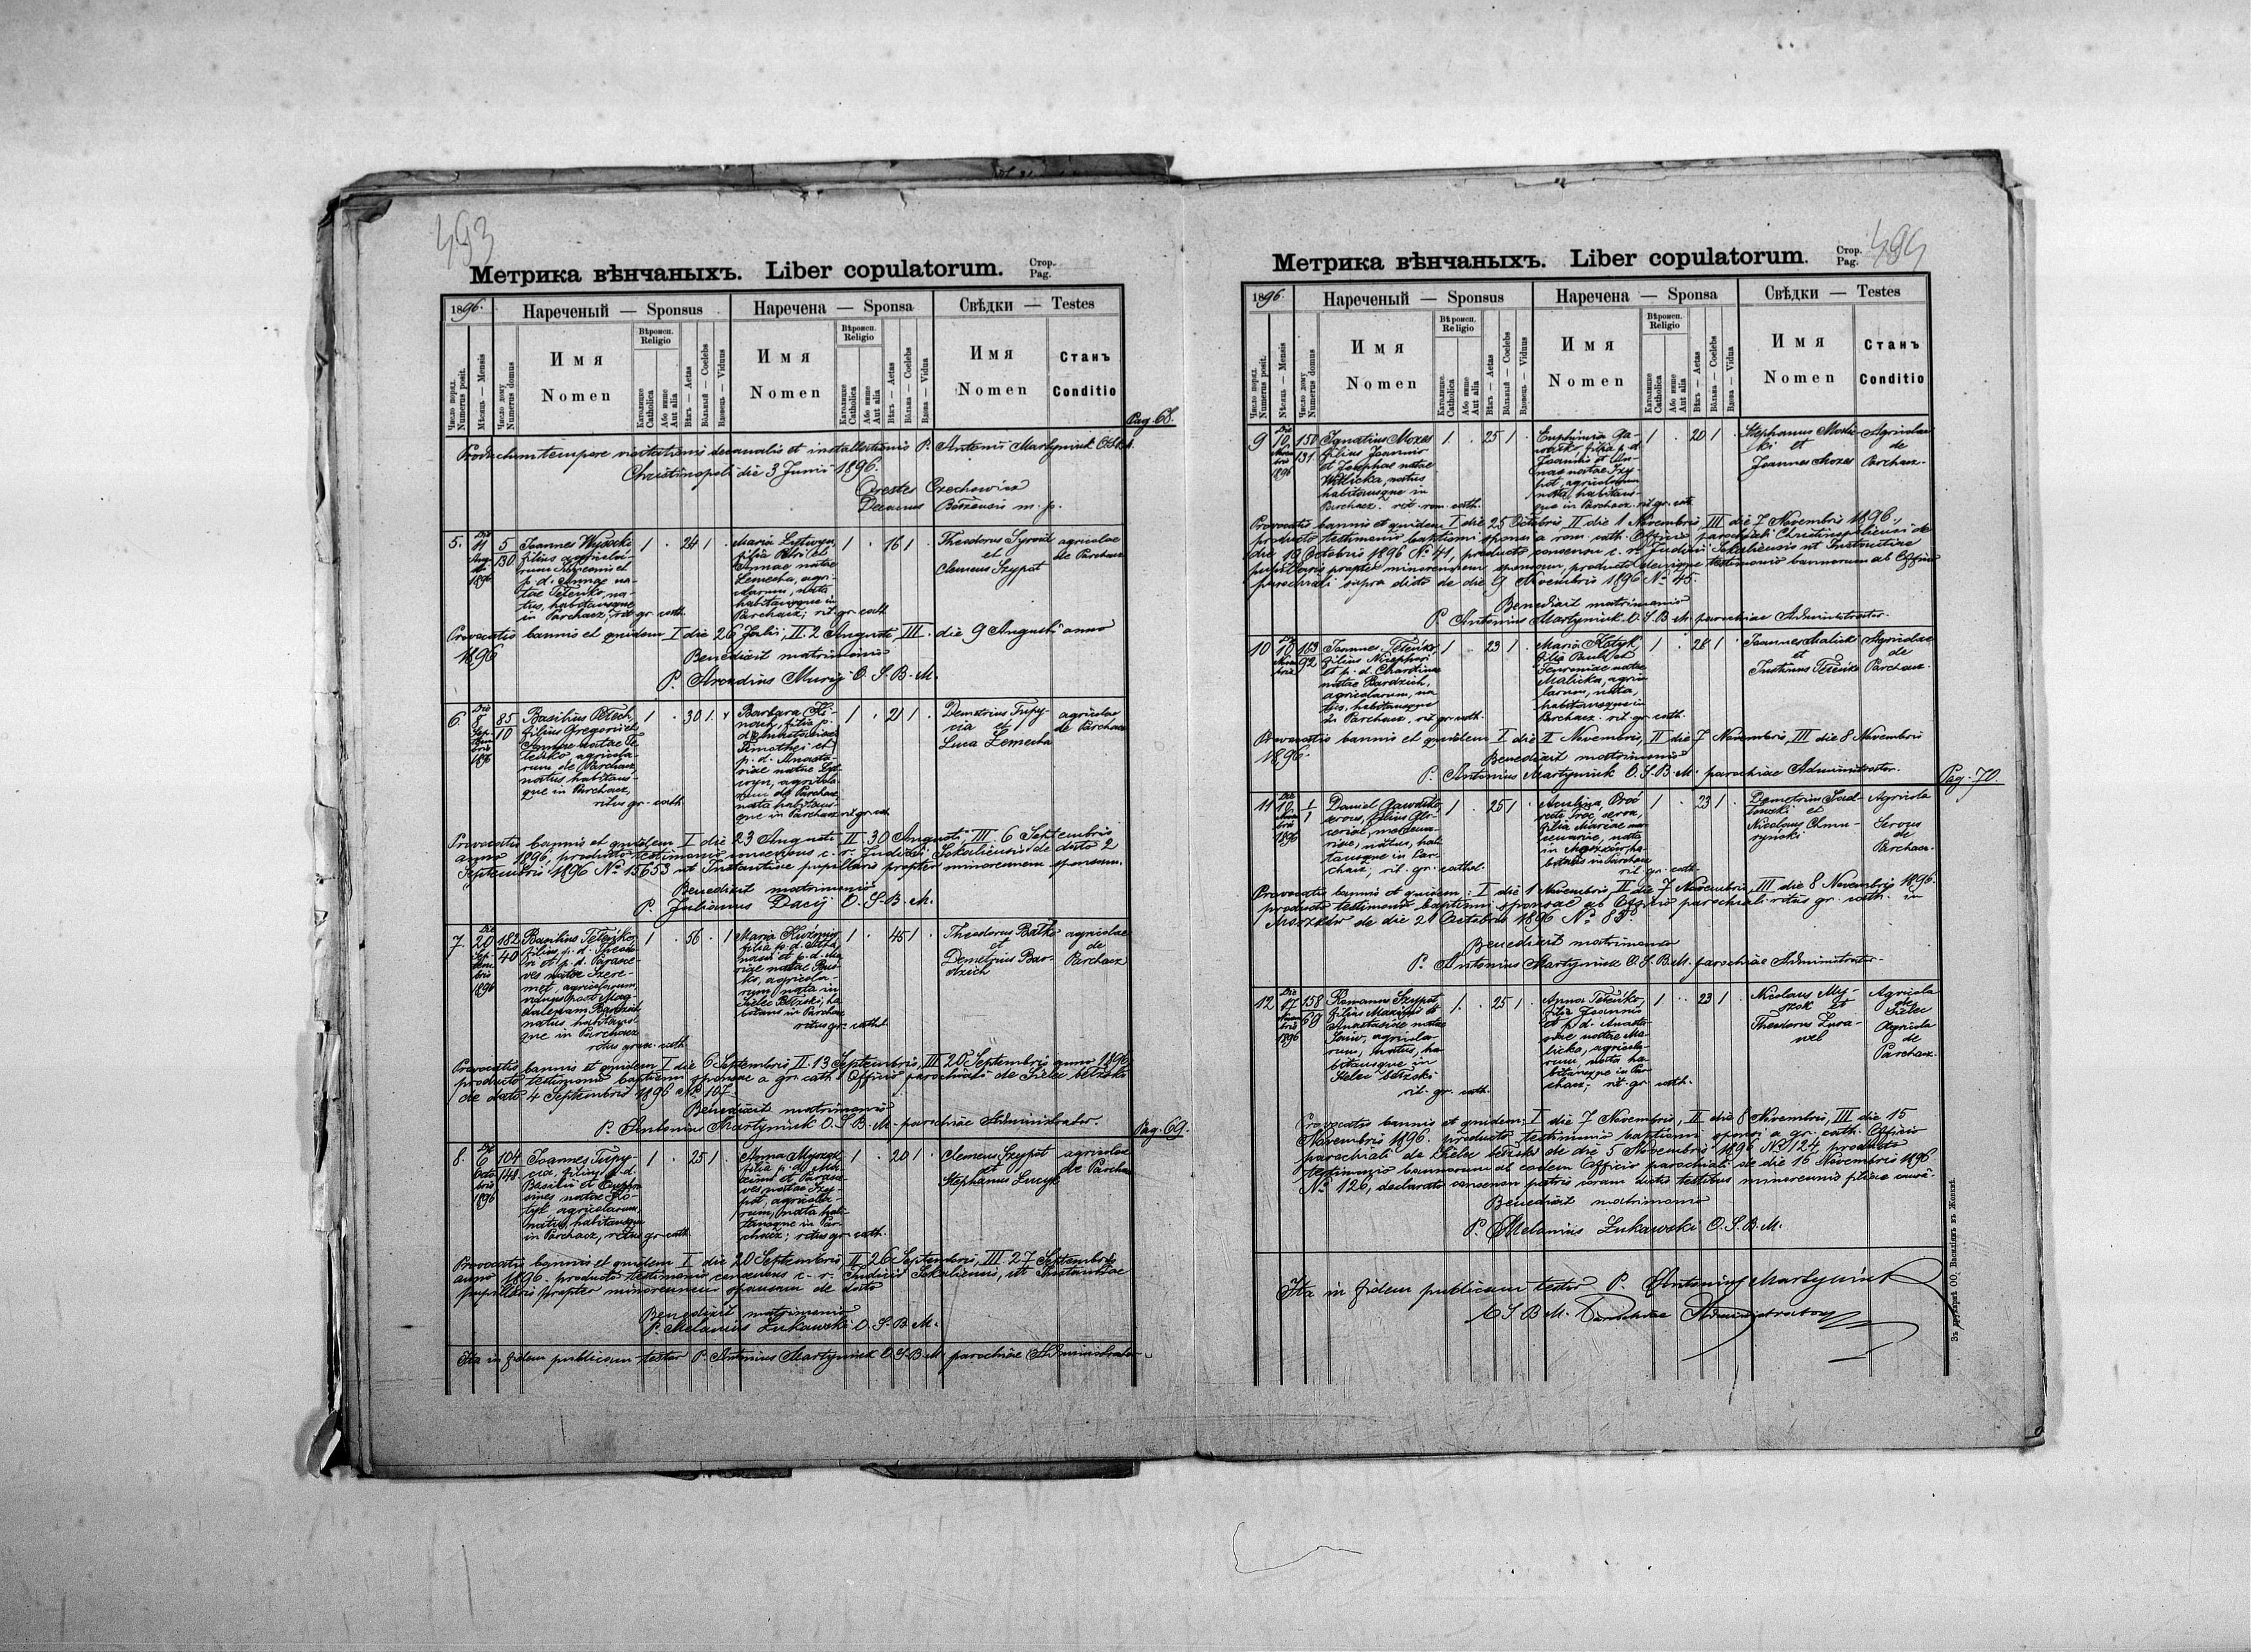 493
Метрика вѣнчаныхъ. Liber copulatorum. Стор. Pag.
1896.
Нареченый — Sponsus
Наречена — Sponsa
Свѣдки — Testes
Число поряд. Numerus posit.
Мѣсяць — Mensis
Число дому Numerus domus
Имя
Nomen
Вѣроисп. Religio
Католицке Catholica
Або инше Aut alia
Вѣкъ — Aetas
Вôльный — Coelebs
Вдовець — Viduus
Имя
Nomen
Вѣроисп. Religio
Католицке Catholica
Або инше Aut alia
Вѣкъ — Aetas
Вôльна — Coelebs
Вдова — Vidua
Имя
Nomen
Станъ
Conditio
Pag. 68.
Productum tempore visitationis decanalis et installationis P. Antonii Martyniuk
Christinopoli die 3 Junii 1896.
Orestes Czechowicz
Decanus m. p.
5.
Die 11 Aug. 1896
5
130
Joannes Wysocki
filius agricola-
rum
p. d. Annae na-
tae Teteńko, na-
tus, habitansque
in Parchacz, rit. gr. cath.
1 . 24 1 .
Maria Lytwyn,
filia Petri et
Annae natae
Zemecha, agri-
colarum, nata
habitansque in
Parchacz; rit. gr. cath.
1 . 16 1
Theodorus Syroid
et
Clemens Szypot
agricolae
de Parchacz
Provocatis bannis et quidem I die 26 Julii, II. 2 Augusti, III. die 9 Augusti anno
1896
Benedixit matrimonio
P. Arcadius O. S. B. M.
6
Die 8 Septembris 1896
85
10
Basilius Petech,
filius Gregorii et
Annae natae Te-
teńko agricola-
rum de Parchacz
natus habitans-
que in Parchacz,
ritus gr. cath.
1 . 30 1 .
Barbara
filia p.
Timothei et
p. d. Anasta-
siae natae Lyt-
wyn, agricola-
rum de Parchacz
nata habitans-
que in Parchacz rit gr. cath
1 . 21 1 .
Demetrius Tupy-
cia et
Luca Zemecha
agricolae
de Parchacz
Provocatis bannis et quidem I die 23 Augusti II 30 Augusti, III 6 Septembris
anno 1896, producto testimonio consensus c. r. Judicii Sokaliensis de dato 2
Septembris 1896 No 15653 ut Instantiae pupillaris propter minorennem sponsam.
Benedixit matrimonio
P. Julianus Dacij O. S. B. M.
7.
Die 20 Septembris 1896
182
40
Basilius Teteńko,
filius p. d. Theodo-
ri et p. d. Parasce-
ves natae Szere-
met, agricolarum,
viduus post Mag-
dalenam Bardzich
natus, habitans-
que in Parchacz
ritus graec. cath.
1 . 56 . 1
Maria Kuźmin,
filia p. d. Atha-
nasii et p. d. Ma-
riae natae
agricola-
rum, nata in
Sielec Bełzski, ha-
bitans in Parchacz
ritus gr. cathol.
1 . 45 1
Theodorus Batko
et
Demetrius Bar-
dzich
agricolae
de
Parchacz
Provocatis bannis et quidem I die 6 Septembris, II. 13 Septembris, III 20 Septembris anno 1896,
producto testimonio baptismi sponsae a gr. cath. Officio parochiali de Sielec bełzski
de dato 4 Septembris 1896 No 107
Benedixit matrimonio
P. Antonius Martyniuk O. S. B. M. parochiae Administrator.
Pag. 69.
8.
Die 6 Octobris 1896
104
148
Joannes Tupy-
cia, filius p. d.
Basilii et Euphro-
sines natae Ko-
tyk, agricolarum,
natus, habitansque
in Parchacz, ritus gr. cath.
1 . 25 1
Anna Myszczak
filia p. d.
et Parasce-
ves natae Szy-
pot, agricola-
rum, nata habi-
tansque in Par-
chacz; ritus gr. cath.
1 . 20 1
Clemens Szypot
et
Stephanus Lucyk
agricolae
de Parchacz
Provocatis bannis et quidem I die 20 Septembris, II 26 Septembris, III 27 Septembris
anno 1896. producto testimonio consensus c. r. Judicii Sokaliensis, ut Instantiae
pupillaris propter minorennem sponsam de dato
Benedixit matrimonio
P. Melanius Łukawski O. S. B. M.
Ita in fidem publicam testor P. Antonius Martyniuk O. S. B. M. parochiae Administrator
494
Метрика вѣнчаныхъ. Liber copulatorum. Стор. Pag.
1896.
Нареченый — Sponsus
Наречена — Sponsa
Свѣдки — Testes
Число поряд. Numerus posit.
Мѣсяць — Mensis
Число дому Numerus domus
Имя
Nomen
Вѣроисп. Religio
Католицке Catholica
Або инше Aut alia
Вѣкъ — Aetas
Вôльный — Coelebs
Вдовець — Viduus
Имя
Nomen
Вѣроисп. Religio
Католицке Catholica
Або инше Aut alia
Вѣкъ — Aetas
Вôльна — Coelebs
Вдова — Vidua
Имя
Nomen
Станъ
Conditio
9
Die 10 Novembris 1896
150
131
Ignatius Mozes
filius Joannis
et Josephae natae
Witlicka, natus
habitansque in
Parchacz. rit. rom. cath.
1. . 25 1 .
Euphimia Ga-
filia p. d.
Joannis et An-
nae natae Szy-
pot, agricolarum
nata, habitans-
que in Parchacz rit. gr. cath
1 . 20 1 .
Stephanus
et
Joannes Mozes
Agricolae
de
Parchacz.
Provocatis bannis et quidem I die 25 Octobris, II die 1 Novembris, III die 7 Novembris 1896,
producto testimonio baptismi sponsi a rom. cath. Officio parochiali Christinopoliensi de
die 19 Octobris 1896 No 41, producto consensu c. r. Judicii Sokaliensis ut Instantiae
pupillaris propter minorennem sponsam, producto denique testimonio bannorum ab Officio
parochiali supra dicto de die 9 Novembris 1896 No 45.
Benedixit matrimonio
P. Antonius Martyniuk O. S. B. M. parochiae Administrator.
10
Die 10 Novembris
163
92
Joannes Teteńko,
filius Nicephori
et p. d.
natae Bardzich,
agricolarum, na-
tus, habitansque
in Parchacz, rit. gr. cath.
1 . 23 1
Maria Kotyk,
filia Pauli et
natae
Malicka, agrico-
larum, nata,
habitansque in
Parchacz. rit. gr. cath.
Joannes Malick
et
Justinus Teteńko
Agricolae
de
Parchacz.
Provocatis bannis et quidem I die 1 Novembris, II die 7 Novembris, III die 8 Novembris
1896.
Benedixit matrimonio
P. Antonius Martyniuk O. S. B. M. parochiae Administrator.
Pag. 70.
11
Die 10 Novembris 1896
1
1
Daniel
servus, filius
natus, habi-
tansque in Par-
chacz, rit. gr. cathol.
1 . 25 1
Paulina
serva,
filia Mariae
nata
in Mszków, ha-
bitans in Parchacz
rit. gr. cath.
1 . 23 1 .
Demetrius
et
Nicolaus Chmu-
rzyński
Agricola
Servus
de
Parchacz.
Provocatis bannis et quidem: I die 1 Novembris, II die 7 Novembris, III die 8 Novembris 1896.
producto testimonio baptismi sponsae ab Officio parochiali ritus gr. cath. in
de die 21 Octobris 1896 No 83.
Benedixit matrimonio
P. Antonius Martyniuk O. S. B. M. parochiae Administrator.
12
Die 17 Novembris 1896
158
69
Romanus Szypot
filius Maximi et
Anastasiae natae
agricola-
rum, natus, ha-
bitansque in
Sielec bełzski
rit. gr. cath.
1. . 25 1 .
Anna Teteńko,
filia Joannis
et p. d. Anasta-
siae natae Ma-
licka, agricola-
rum, nata ha-
bitansque in Par-
chacz; rit. gr. cath.
1 . 23 1 .
Nicolaus My-
szok et
Theodorus Żura-
wel
Agricola
de
Sielec
Agricola
de
Parchacz.
Provocatis bannis et quidem: I die 7 Novembris, II die 8 Novembris, III die 15
Novembris 1896. producto testimonio baptismi sponsi a gr. cath. Officio
parochiali de Sielec bełzski de die 5 Novembris 1896 No 124, producto
testimonio bannorum ab eodem Officio parochiali de die 16 Novembris 1896
No 126, declarato consensu patris coram testibus minorennis filiae
Benedixit matrimonio
P. Melanius Łukawski O. S. B. M.
Ita in fidem publicam testor P. Antonius Martyniuk
O S B M. Parochiae Administrator
Зъ друкарнѣ ОО. Василіянъ въ Жовквѣ.